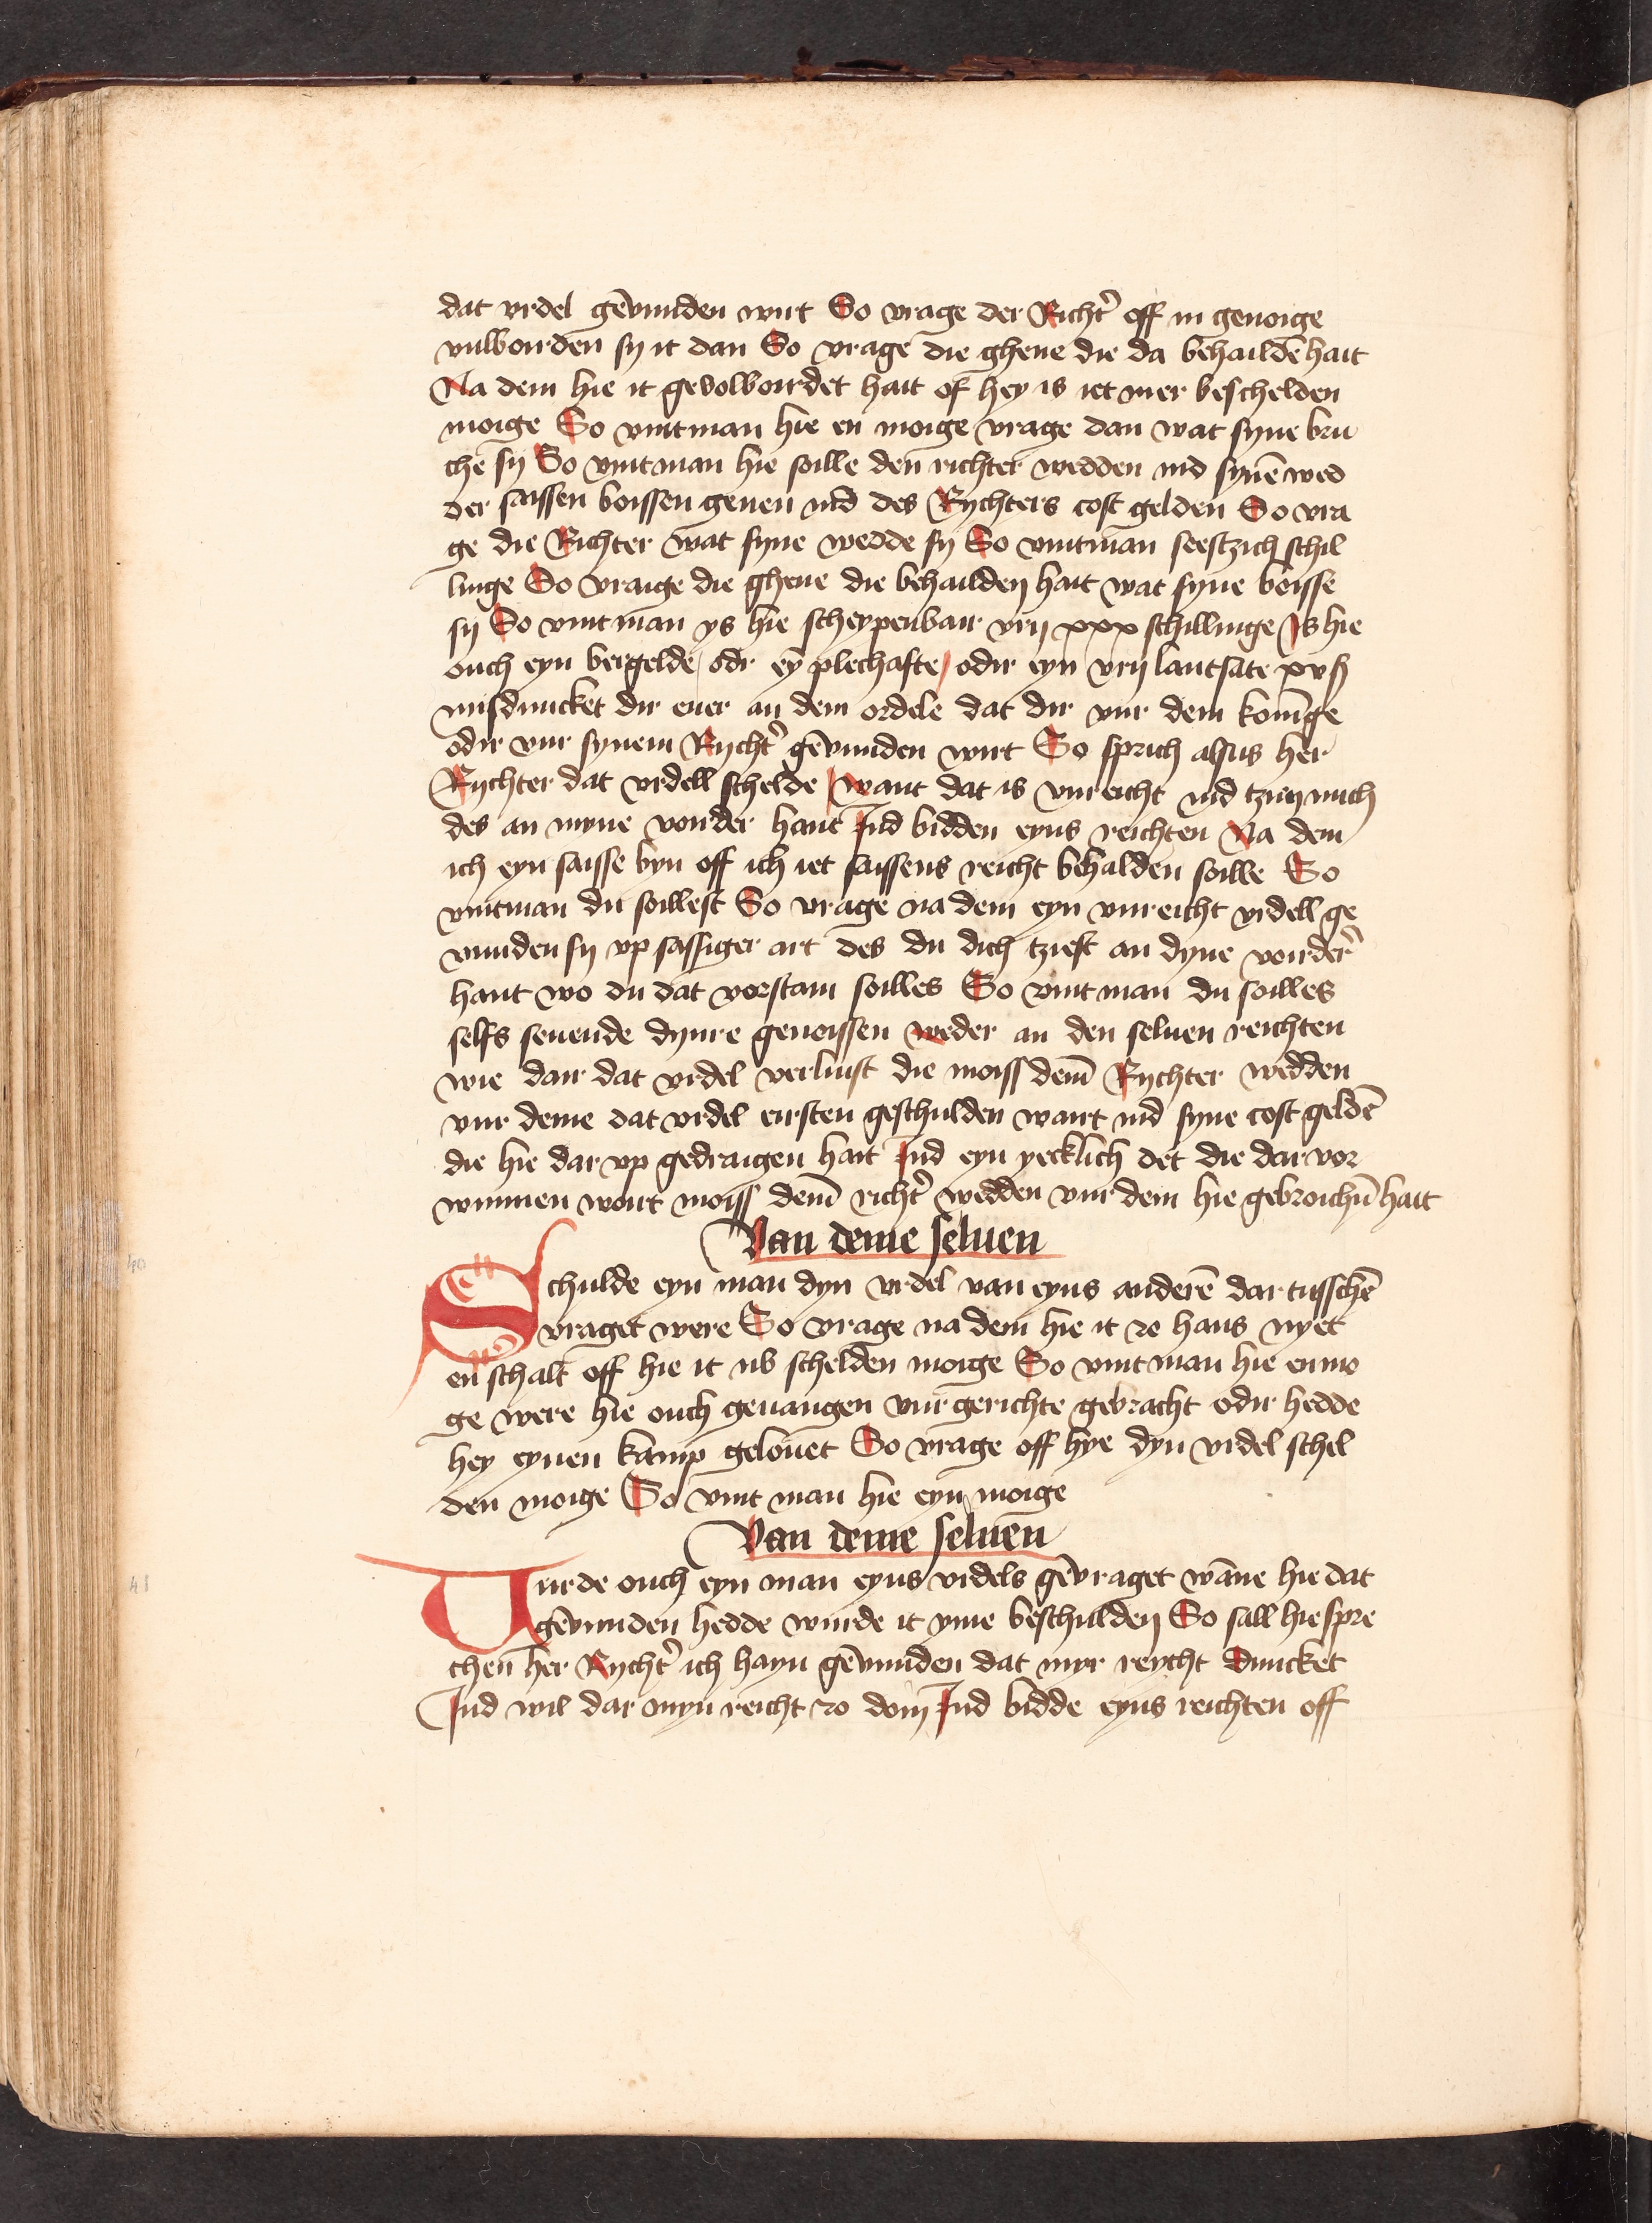 dat vrdel gēvunden wirt So vrage der Richt̉ off in genoige
vulbourden sy it dan So vrage die ghene die da behailden hait
Na dem hie it gevolbourdet hait of hey is iet mer beschelden
moige So vintman hie en moige vrage dan wat syne bru
che sy So vintman hie soille den richter wedden ind synē wed
der saissen boissen geuen ind des Rychters cost gelden So vra
ge die Richter wat syne wedde sy So vintman seestzich schil
linge So vraige die ghene die behailden hait wat syne boisse
sy So vint man ys hie scheypenbair vrij xxx schillinge Is hie
ouch eyn bergelde / odr eȳ plechafte / odir eyn vrij lantsate xvß
misduncket dir euer an dem ordele dat dir vur dem koninge
odir vur synem Rycht̉ gēvunden wirt So sprich alsus her
Rychter dat vrdell schelde / want dat is vnreicht ind tzien mich
des an myne vorder hant Ind bidden eyns reichten Na dem
ich eyn saisse byn off ich iet saissens reicht behalden soille So
vintman du soillest So vrage na dem eyn vnreicht vrdell ge
vunden sy vp sassiger art des du dich tziest an dyne vorder̉
hant wo du dat voestain soilles So vint man du soilles
selfs seuende dynre genoissen weder an den seluen reichten
wie dair dat vrdel verluist die moiss dem̄ Rychter wedden
vur deme dat vrdel eirsten geschulden wart ind syne cost geldē
die hie dar vp gedraigen hait Ind eyn yecklich det die dar vor
wunnen wort moiss dem̄ richt̉ wedden vur dem hie gebroichn̄ hait
Van deme seluen
Schulde eyn man dyn vrdel van eyns anderē dar tusschē
vraget were So vrage na dem hie it zo hans nyet
en schalt off hie it nv schelden moige So vint man hie en mo
ge were hie ouch geuangen vur gerichte gebracht odir hedde
hey eynen kamp gelouet So vrage off hye dyn vrdel schel
den moige So vint man hie eyn moige
Van deme seluen
Wurde ouch eyn man eyns vrdels gēvraget wāne hie dat
gēvunden hedde wurde it yme beschulden So sall hie spre
chen her Rycht̉ ich hayn gēvunden dat myr reycht duncket
Ind wil dar myn reicht zo doin Ind bidde eyns reichten off
40
41